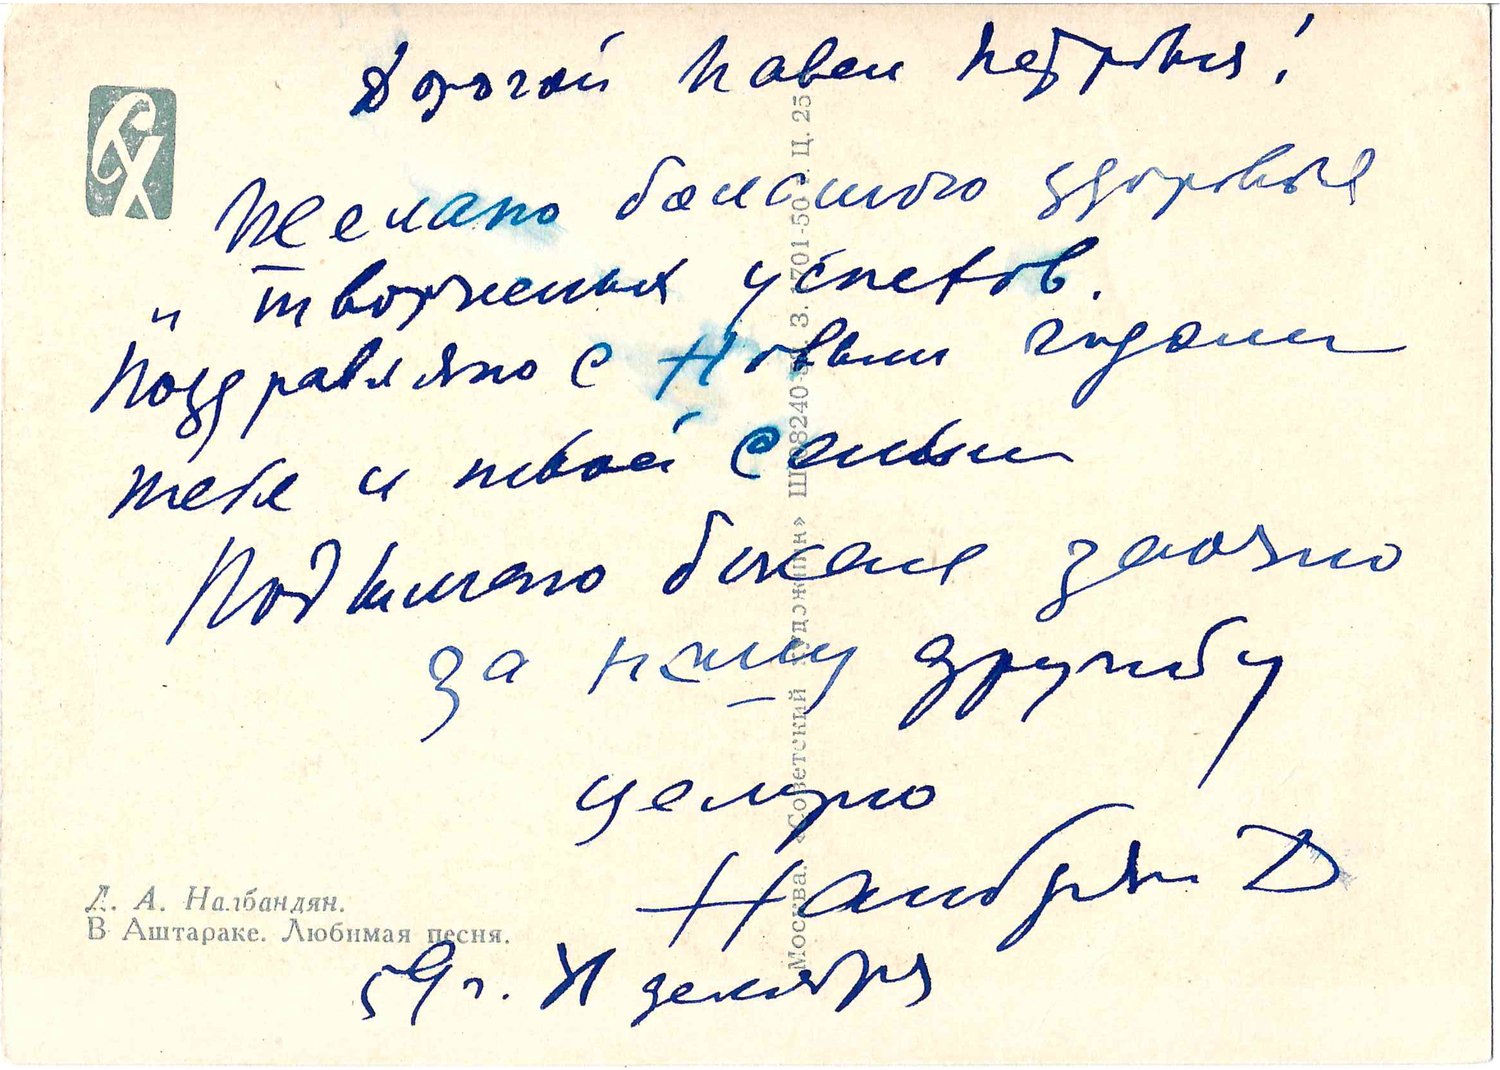 Дорогой Павел Петрович!
Желаю большого здоровья
и творческих успехов.
Поздравляю с Новым годом
тебя и твоей семьи
Поднимаю бокал заочно
за нашу дружбу
целую
Налбандян Д
59 г. декабря
СХ
Д. А. Налбандян.
В Аштараке. Любимая песня.
Москва. «Советский художник»